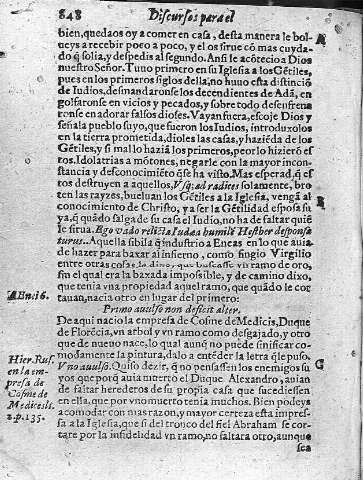 848 Discursos para el
bien, quedaos oy a comer en casa, desta manera le bol-
ueys a recebir poco a poco, y el os sirue cō mas cuyda-
do q̄ solia, y despedis al segundo. Ansi le acōtecio a Dios
nuestro Señor. Tuuo primero en su Iglesia a los Gētiles,
pues en los primeros siglos della, no huuo esta distinciō
de Iudios, desmandaronse los decendientes de Adā, en
golfaronse en vicios y pecados, y sobre todo desenfrena
ronse en adorar falsos dioses. Vayan fuera, escoje Dios y
señala pueblo suyo, que fueron los Iudios, introduxolos
en la tierra prometida, dioles las casas, y haziēda de los
Gētiles, y si mal lo haziā los primeros, peor lo hizierō es
tos. Idolatrias a mōtones, negarle con la mayor incon-
stancia y desconocimiēto q̄ se ha visto. Mas esperad, q̄ si es
tos destruyen a aquellos, Vsq̄; ad radices solamente, bro
ten las rayzes, bueluan los Gētiles a la Iglesia, vengā al
conocimiento de Christo, ya ser la Gētilidad esposa su
ya, q̄ quādo salga de su casa el Iudio, no ha de faltar quiē
le sirua. Ego vado relicta Iudæa humilis Hesther desponsa
turus. Aquella sibila q̄ industrio a Eneas en lo que auia
de hazer para baxar al infierno, como fingio Virgilio
entre otras cosas, le dixo, que buscasse vn ramo de oro,
sin el qual era la baxada impossible, y de camino dixo,
que tenia vna propiedad aquel ramo, que quādo le cor
tauan, nacia otro en lugar del primero:
Primo auulso non deficit alter.
De aqui nacio la empresa de Cosme de Medicis, Duque
de Florēcia, vn arbol y vn ramo como desgajado, y otro
que de nueuo nace, lo qual aunq̄ no puede sinificar co-
modamente la pintura, dalo a entēder la letra q̄ le puso,
Vno auulso. Quiso dezir, q̄ no pensassen los enemigos su
yos que porq̄ auia muerto el Duque Alexandro, auian
de faltar herederos de su propia casa que sucediessen
en ella, que por vno muerto tenia muchos. Bien podeys
acomodar con mas razon, y mayor certeza esta impre-
sa a la Iglesia, que si del tronco del fiel Abraham se cor-
tare por la infidelidad vn ramo, no faltara otro, aunque
sea
A
B
G
Æn. 16.
Hier. Rus.
en la em-
presa de
Cosme de
Medecis li.
2. p. 135.